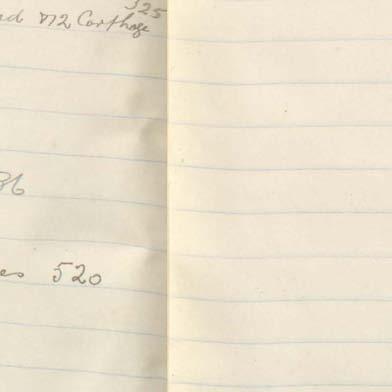 325
nd 712 Carthage
36
es 520